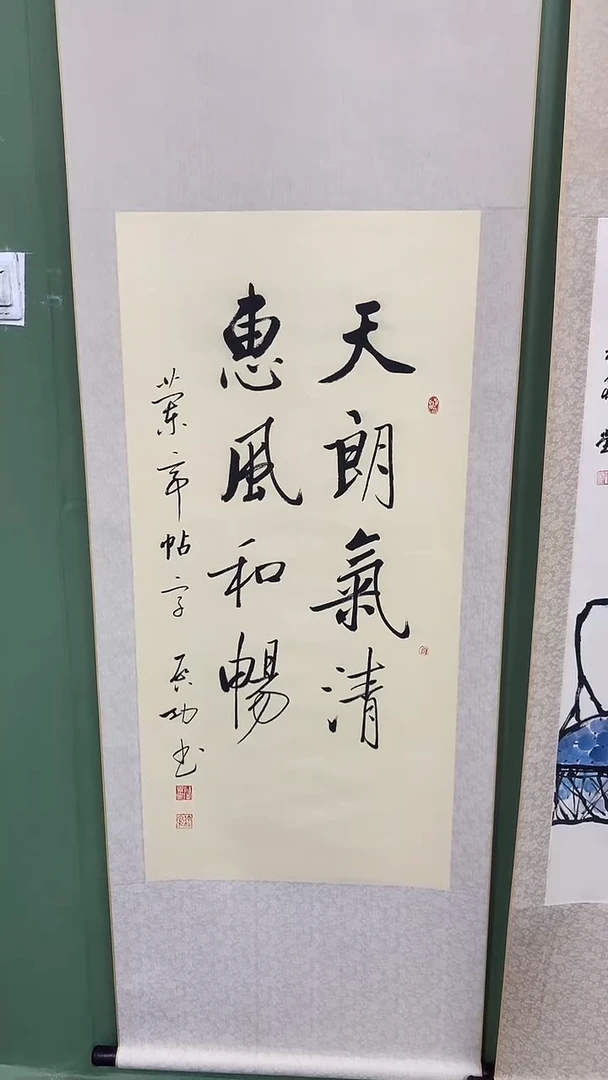 天朗氣清
惠風和暢
蘭亭帖字 啓功書